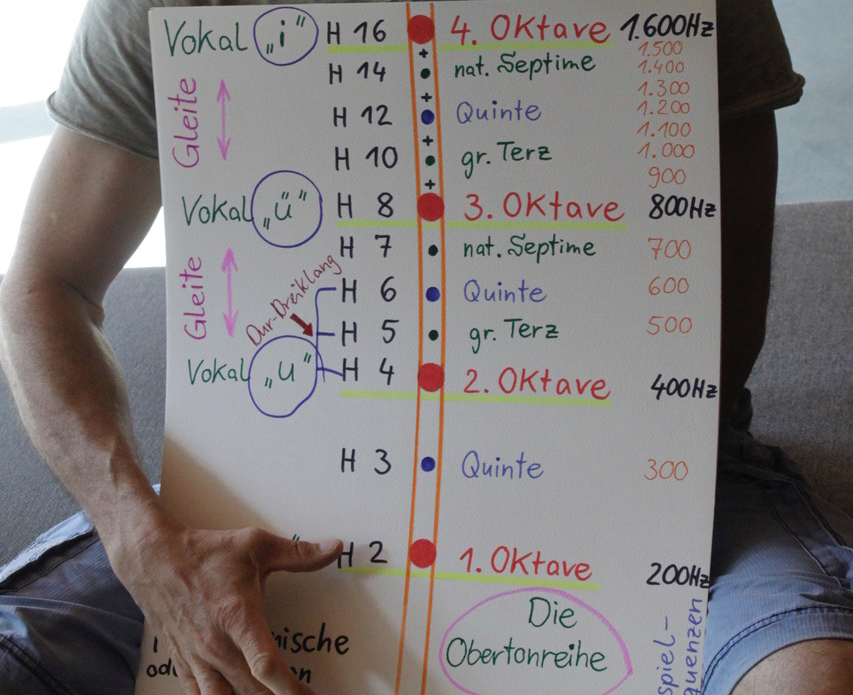 Vokal „i“ H 16 4. Oktave 1.600Hz
1.500
H 14 nat. Septime 1.400
1.300
Gleite H 12 Quinte 1.200
1.100
H 10 gr. Terz 1.000
900
Vokal „ü“ H 8 3. Oktave 800Hz
H 7 nat. Septime 700
Gleite Dur-Dreiklang H 6 Quinte 600
H 5 gr. Terz 500
Vokal „u“ H 4 2. Oktave 400Hz
H 3 Quinte 300
H 2 1. Oktave 200Hz
Die
Obertonreihe